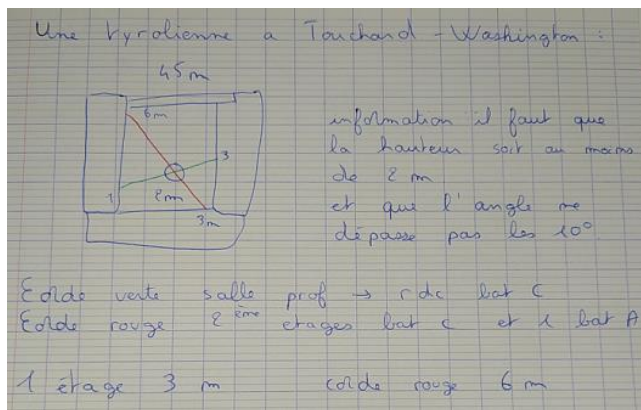 Une tyrolienne a Touchard - Washington :
45 m
6m
information il faut que
la hauteur soit au moins
de 2 m
et que l'angle ne
dépasse pas les 10°
3
1
2m
3m
Corde verte salle prof → rdc bat C
Corde rouge 2 ème etages bat c et 1 bat A
1 étage 3 m corde rouge 6 m